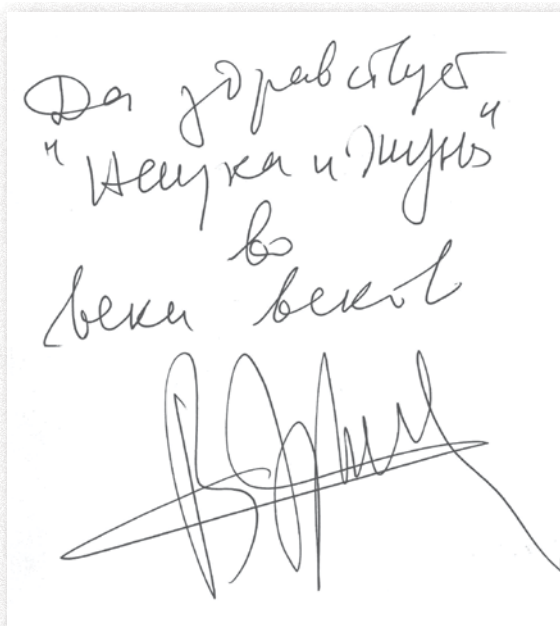 Да здравствует
"Наука и Жизнь"
во
веки веков